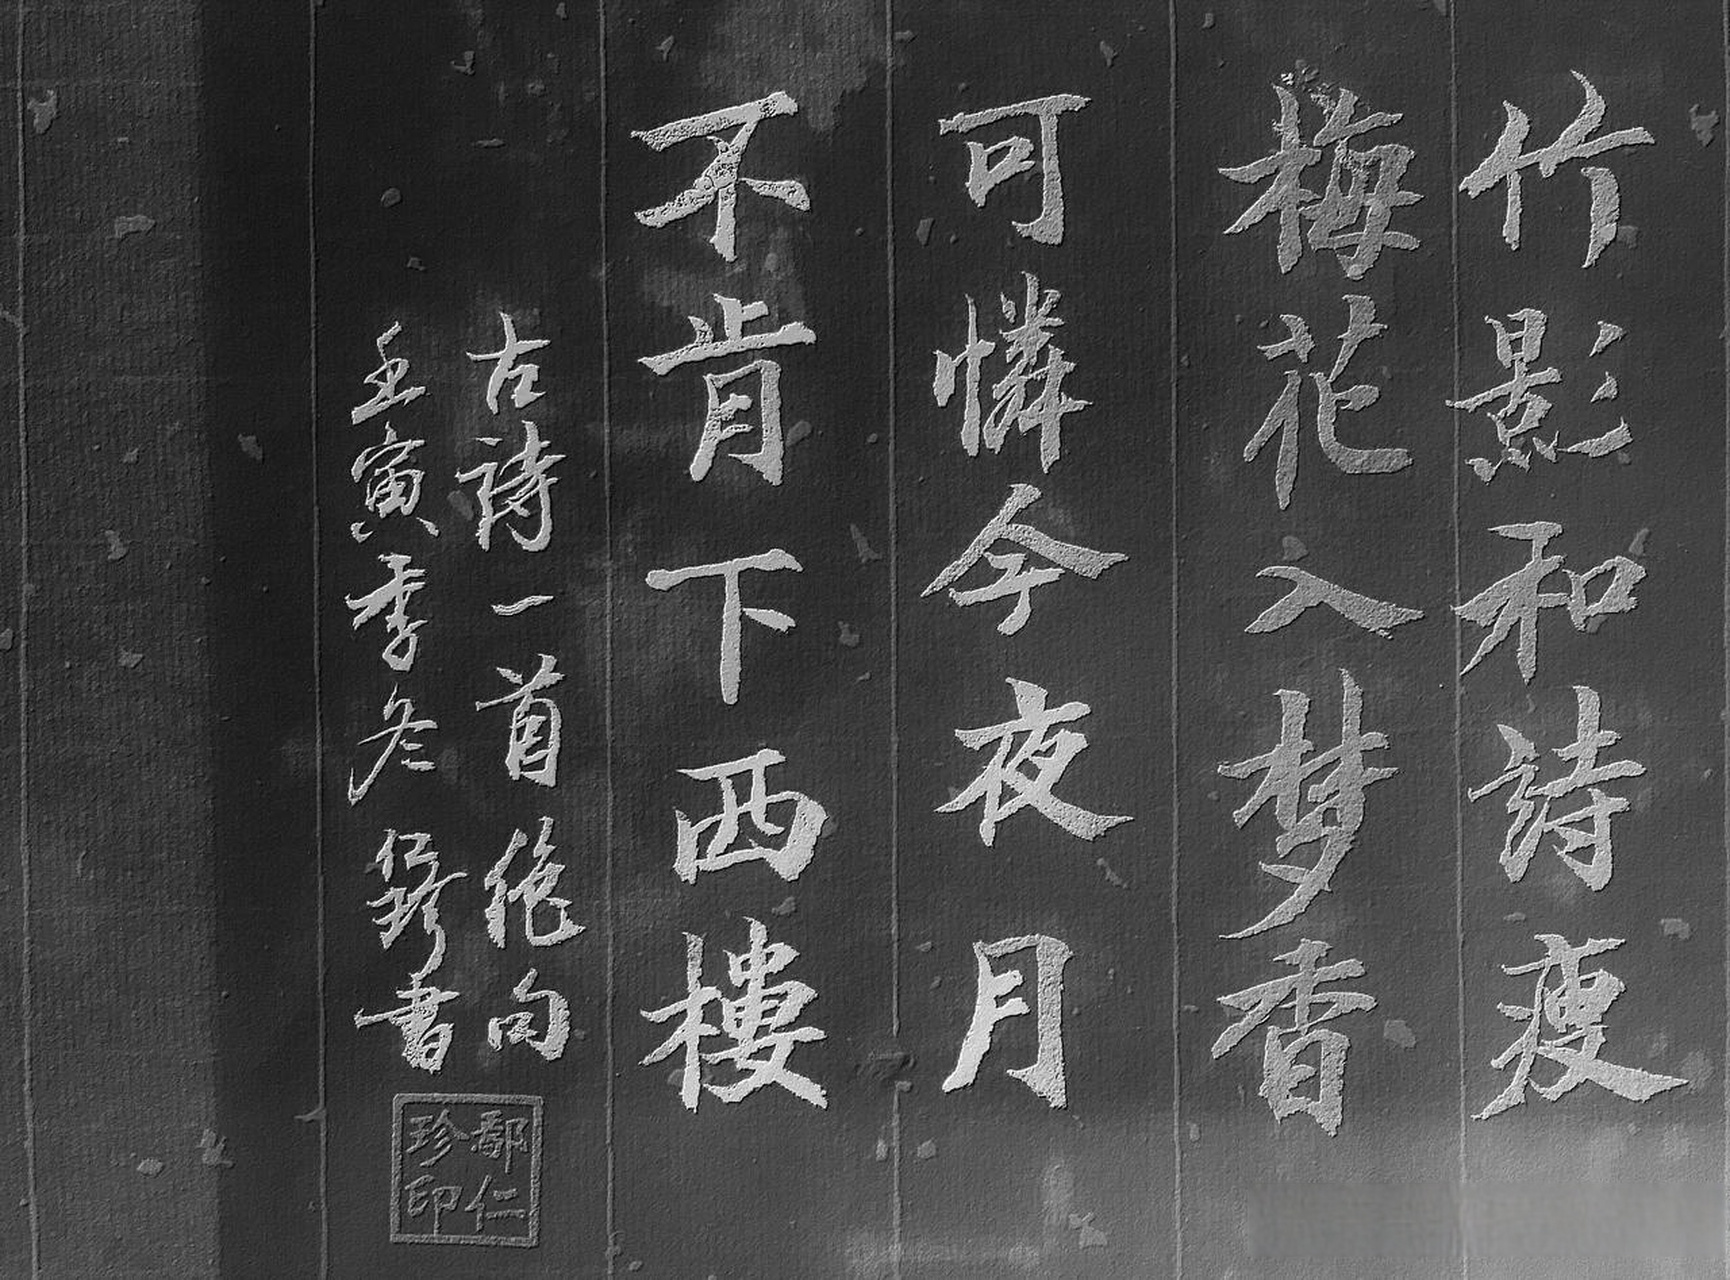 竹影和詩瘦
梅花入梦香
可憐今夜月
不肯下西樓
古詩一首絕句
壬寅季冬仁珍書
鄢仁
珍印